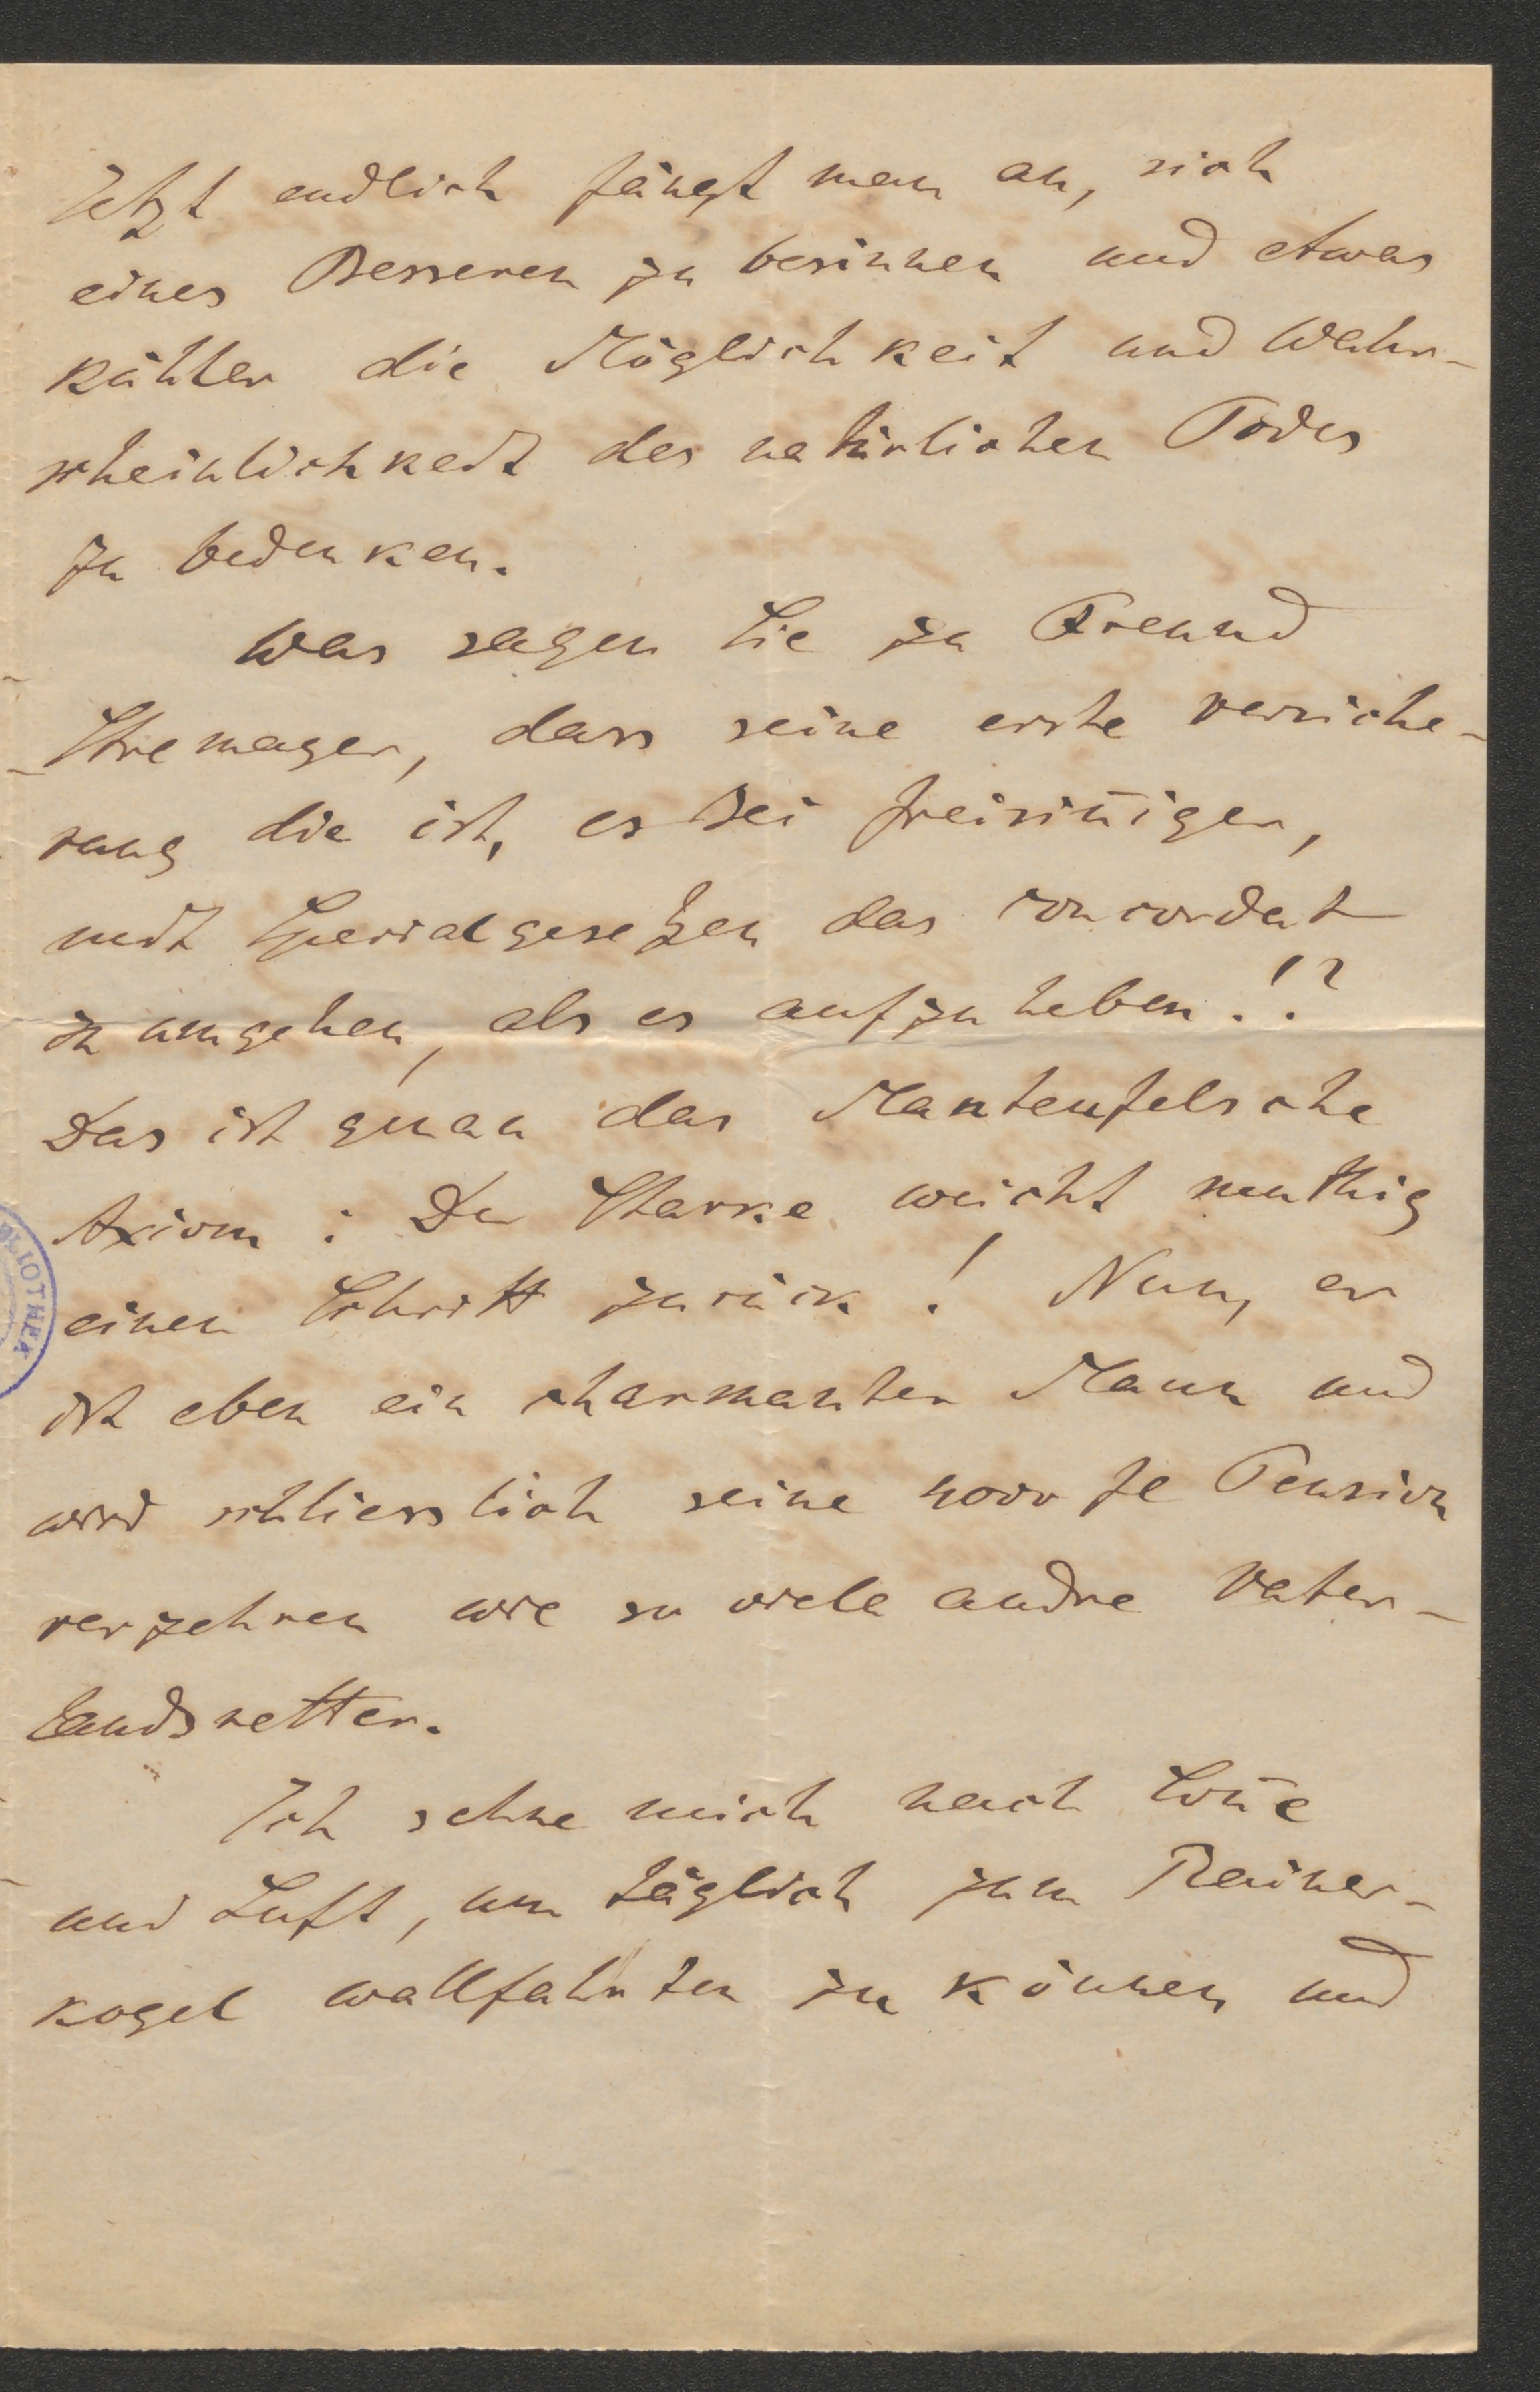 Jetzt endlich fängt man an, sich
eines Besseren zu besinnen und etwas
kühler die Möglichkeit und Wahr-
scheinlichkeit des natürlichen Todes
zu bedenken.
Was sagen Sie zu Freund
Stremayer, dass seine erste Versiche-
rung die ist, es sei freisiniger,
mit Specialgesetzen das Concordat
zu umgehen, als es aufzuheben!?
Das ist genau das Manteufelsche
Axiom: Der Starke weicht muthig
einen Schritt zurück! Nun, er
ist eben ein charmanter Mann und
wird schliesslich seine 4000 fl Pension
verzehren wie so viele andre Vater-
landsretter.
Ich sehne mich nach Soñe
und Luft, um täglich zum Rainer-
kogel wallfahrten zu können und
BLIOTHEK